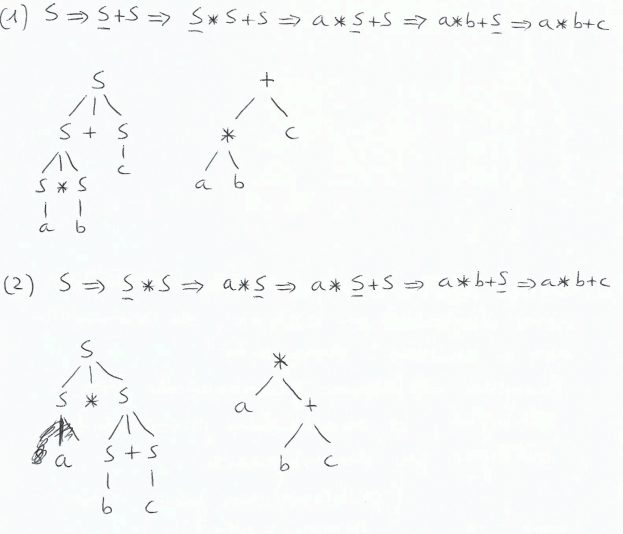 (1) S ⇒ S+S ⇒ S*S+S ⇒ a*S+S ⇒ a*b+S ⇒ a*b+c
S +
S + S * c
c
S * S a b
a b
(2) S ⇒ S*S ⇒ a*S ⇒ a*S+S ⇒ a*b+S ⇒ a*b+c
S *
S * S a +
a S + S b c
b c